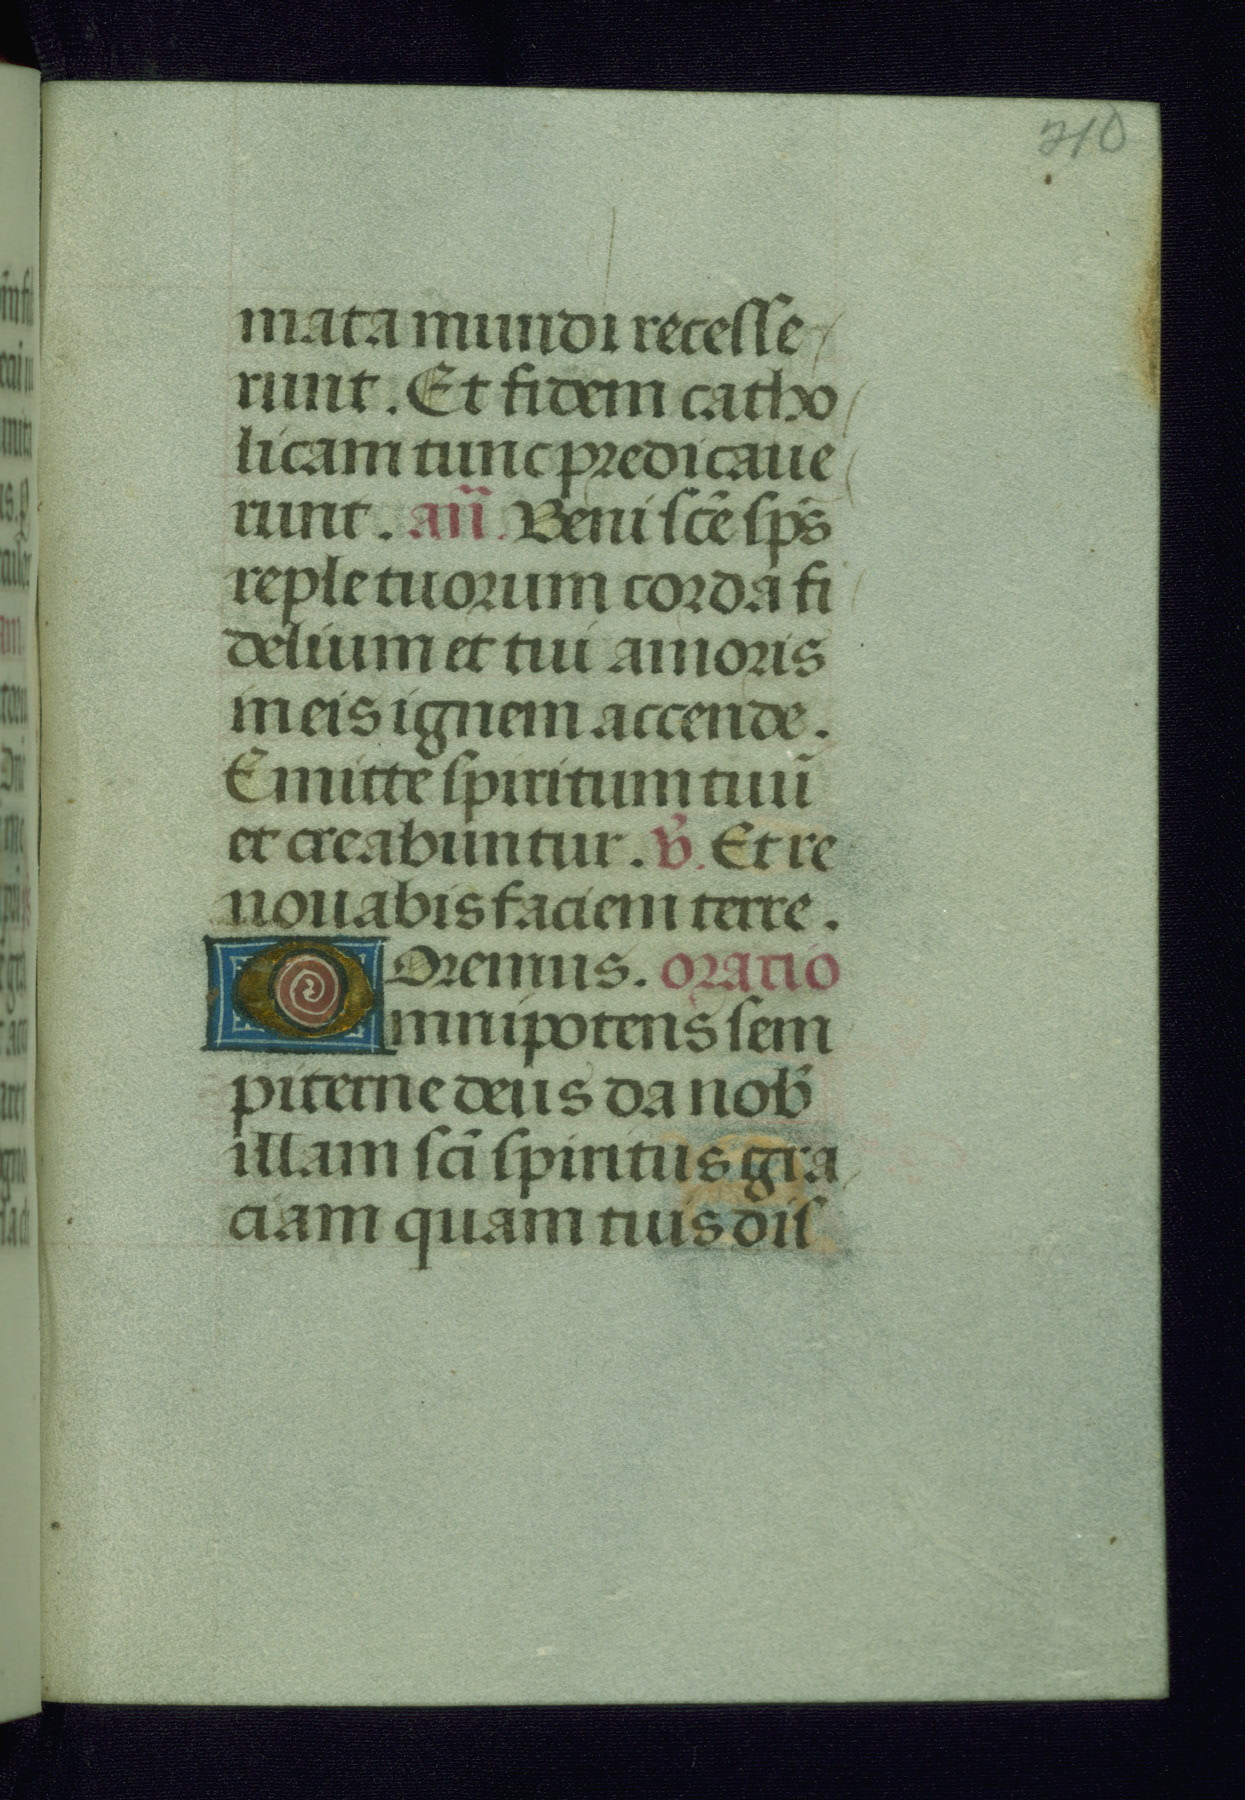 210
mata mundi recesse
runt. Et fidem catho
licam tunc predicaue
runt. añ. Veni scē sp̄s
reple tuorum corda fi
delium et tui amoris
in eis ignem accende.
Emitte spiritum tuū
et creabuntur. v̄. Et re
nouabis faciem terre.
Oremus. oratio
Omnipotens sem
piterne deus da nob̄
illam scī spiritus gra
ciam quam tuis dis